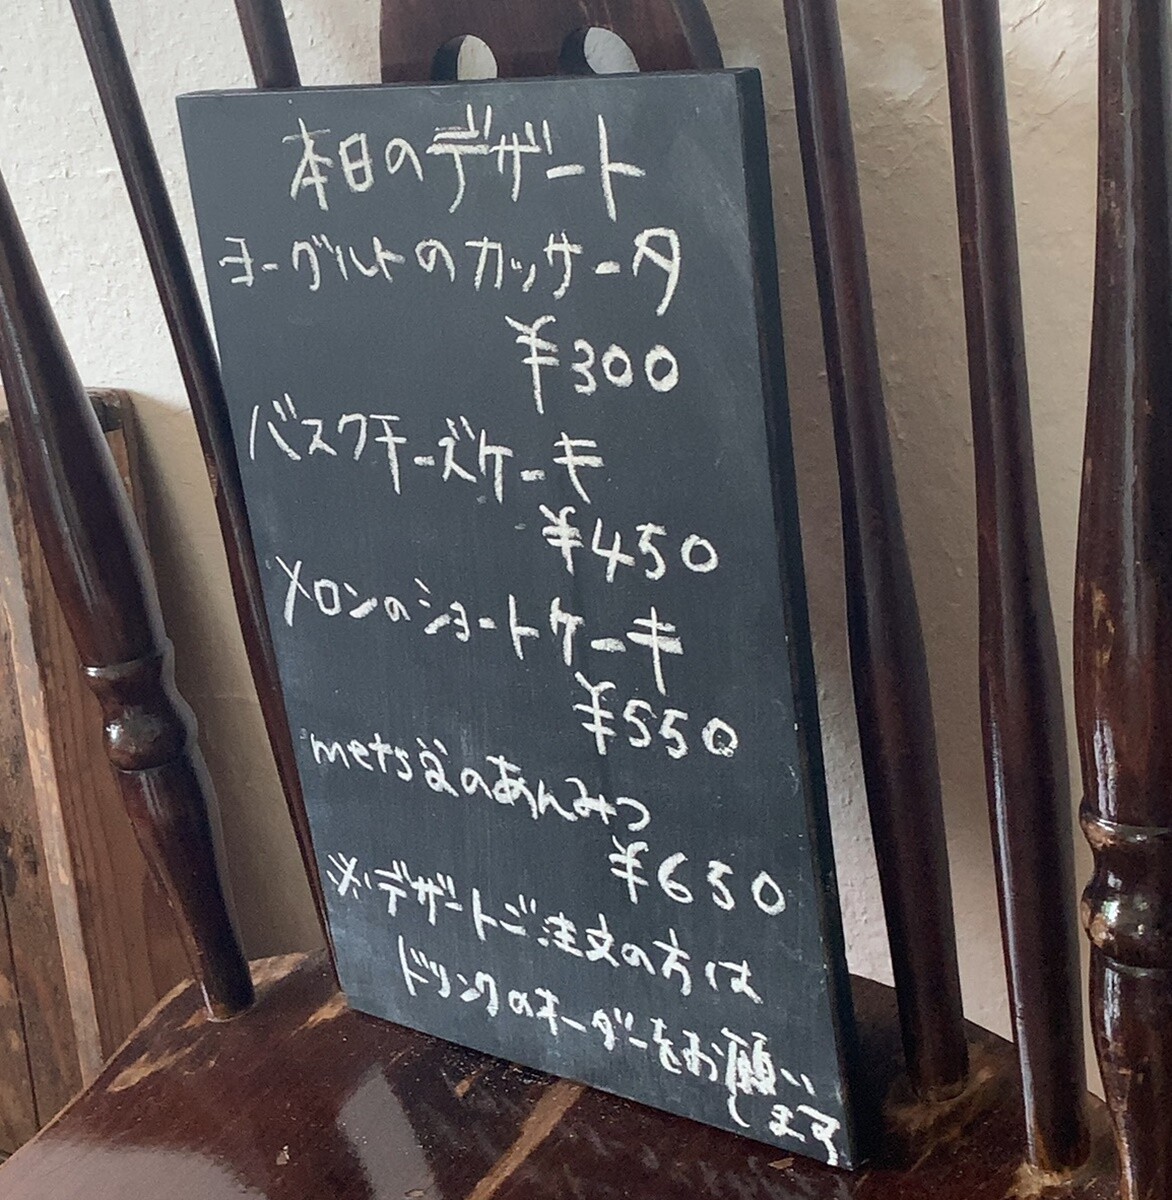 本日のデザート
ヨーグルトのカッサータ
¥300
バスクチーズケーキ
¥450
メロンのショートケーキ
¥550
mets谷のあんみつ
¥650
※デザートご注文の方は
ドリンクのオーダーをお願い
します